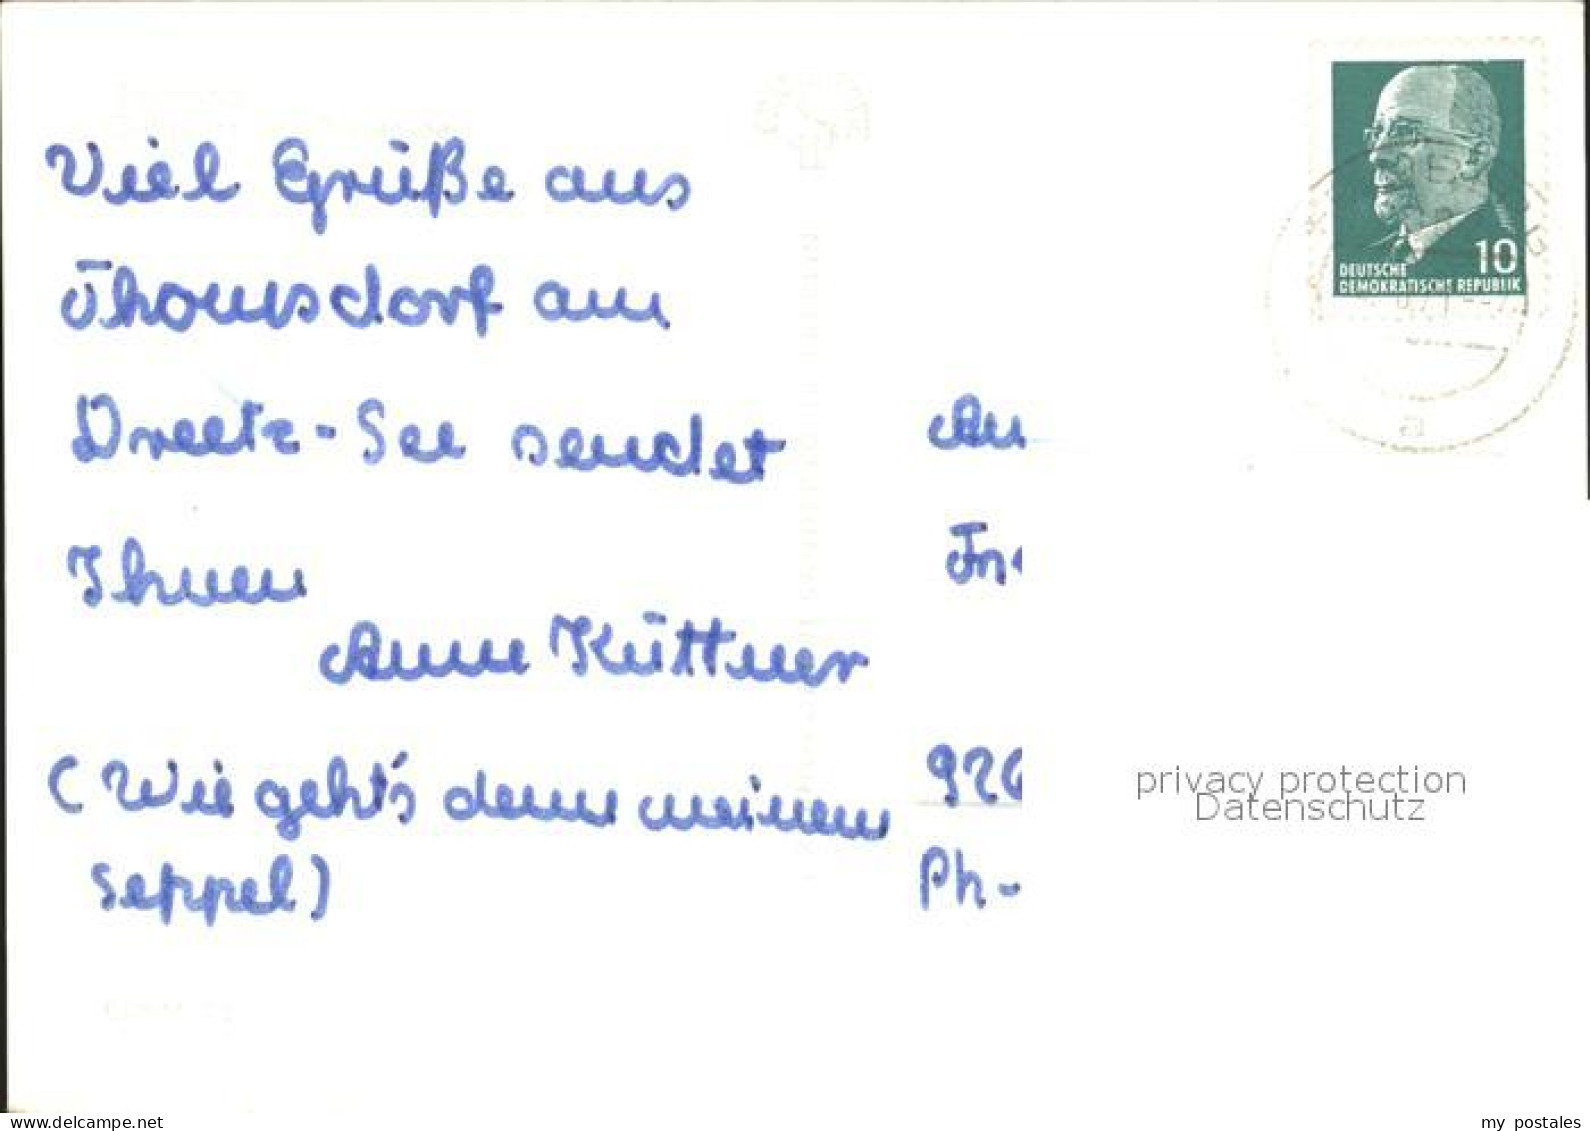 Viel Grüße aus
Thomsdorf am
Dreetz-See sendet
Ihnen
Anne Küttner
(Wie geht's denn meinem
Seppel)
An
926
Ph-
10
DEUTSCHE
DEMOKRATISCHE REPUBLIK
a
privacy protection
Datenschutz
www.delcampe.net
my_postales